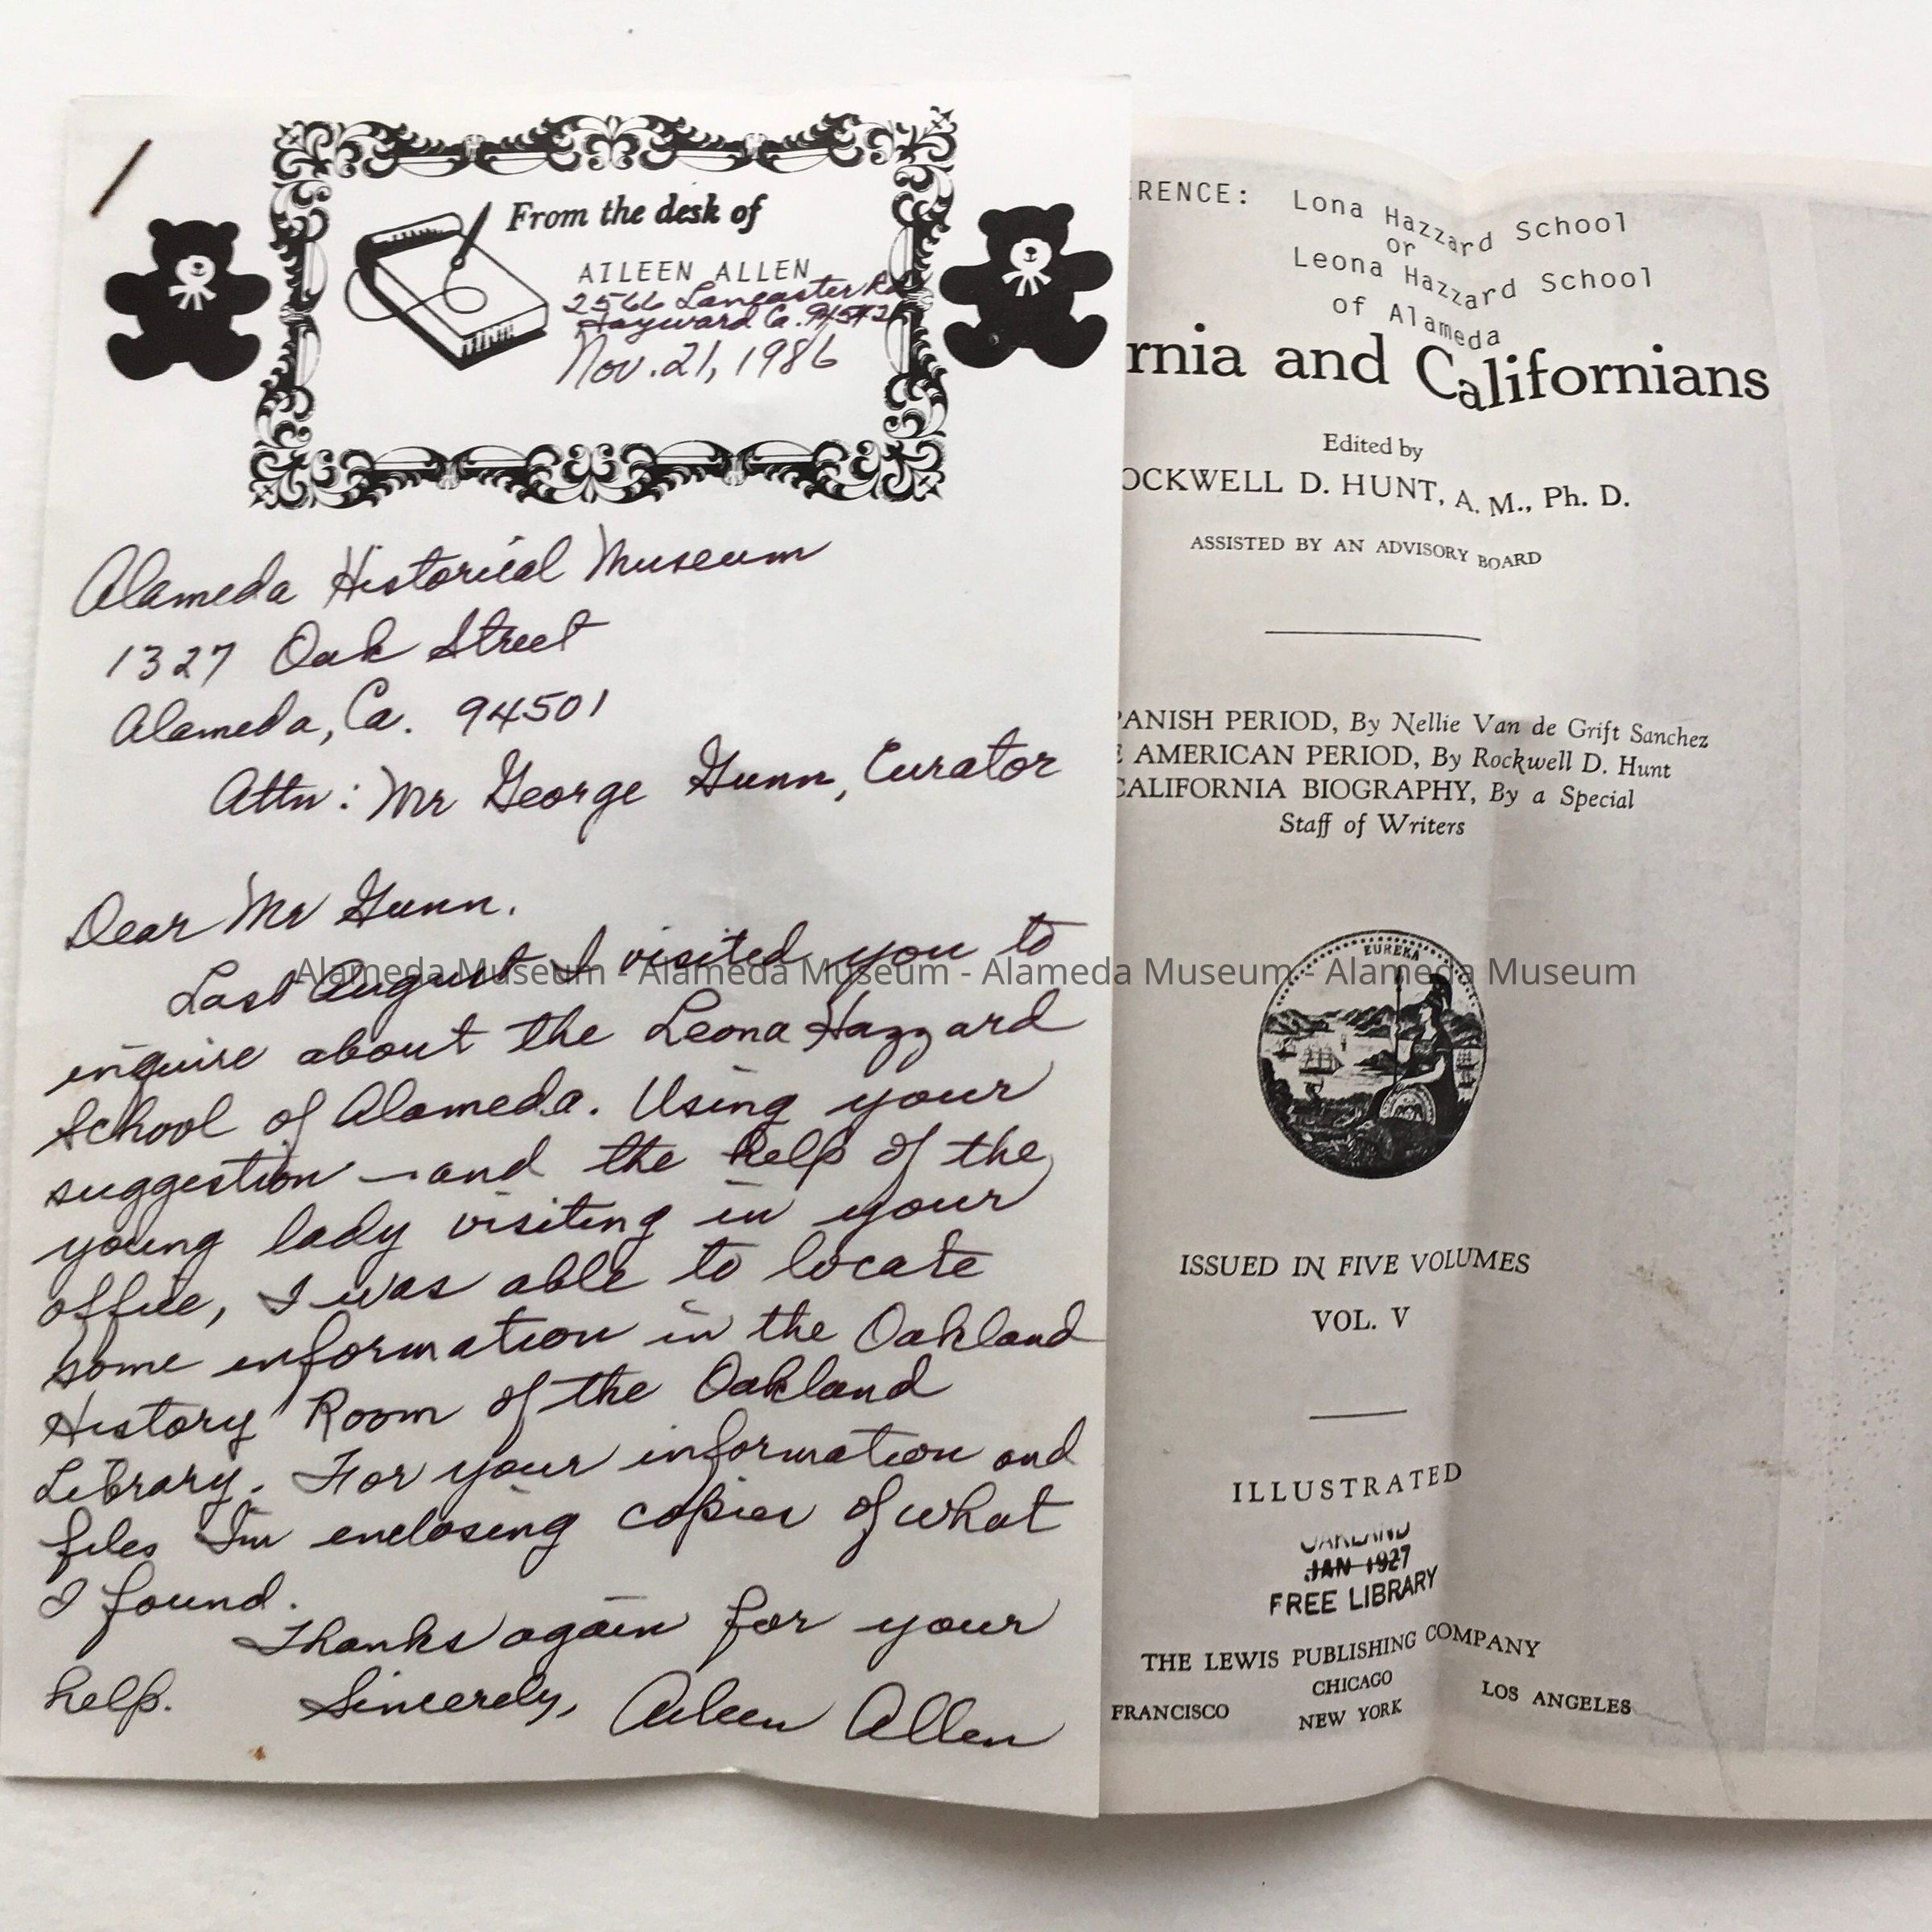 From the desk of
AILEEN ALLEN
Lancaster Rd
Hayward Ca. 94542
Nov. 21, 1986
Alameda Historical Museum
1327 Oak Street
Alameda, Ca. 94501
Attn: Mr George Gunn, Curator
Dear Mr Gunn.
Last August I visited you to
inquire about the Leona Hazzard
School of Alameda. Using your
suggestion — and the help of the
young lady visiting in your
office, I was able to locate
some information in the Oakland
History Room of the Oakland
Library. For your information and
files I'm enclosing copies of what
I found.
Thanks again for your
help. Sincerely, Aileen Allen
RENCE: Lona Hazzard School
or
Leona Hazzard School
of Alameda
rnia and Californians
Edited by
OCKWELL D. HUNT, A. M., Ph. D.
ASSISTED BY AN ADVISORY BOARD
PANISH PERIOD, By Nellie Van de Grift Sanchez
E AMERICAN PERIOD, By Rockwell D. Hunt
CALIFORNIA BIOGRAPHY, By a Special
Staff of Writers
EUREKA
ISSUED IN FIVE VOLUMES
VOL. V
ILLUSTRATED
OAKLAND
JAN 1927
FREE LIBRARY
THE LEWIS PUBLISHING COMPANY
CHICAGO
FRANCISCO NEW YORK LOS ANGELES
Alameda Museum - Alameda Museum - Alameda Museum - Alameda Museum